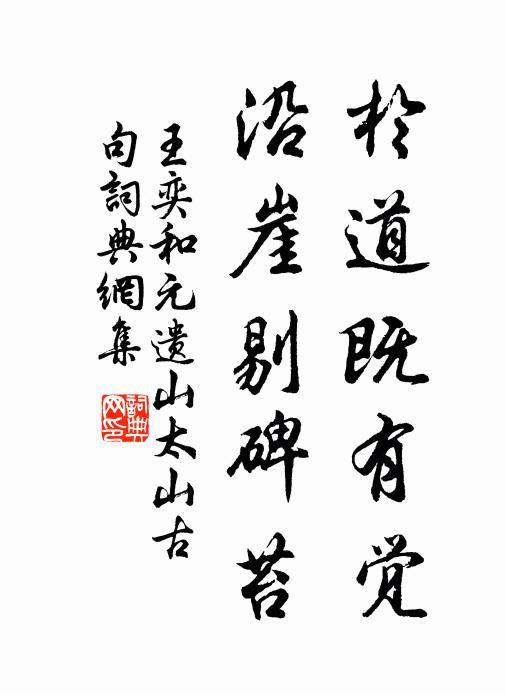 於道既有觉
沿崖剔碑苔
王奕和元遗山太山古
句詞典網集
詞典
网印